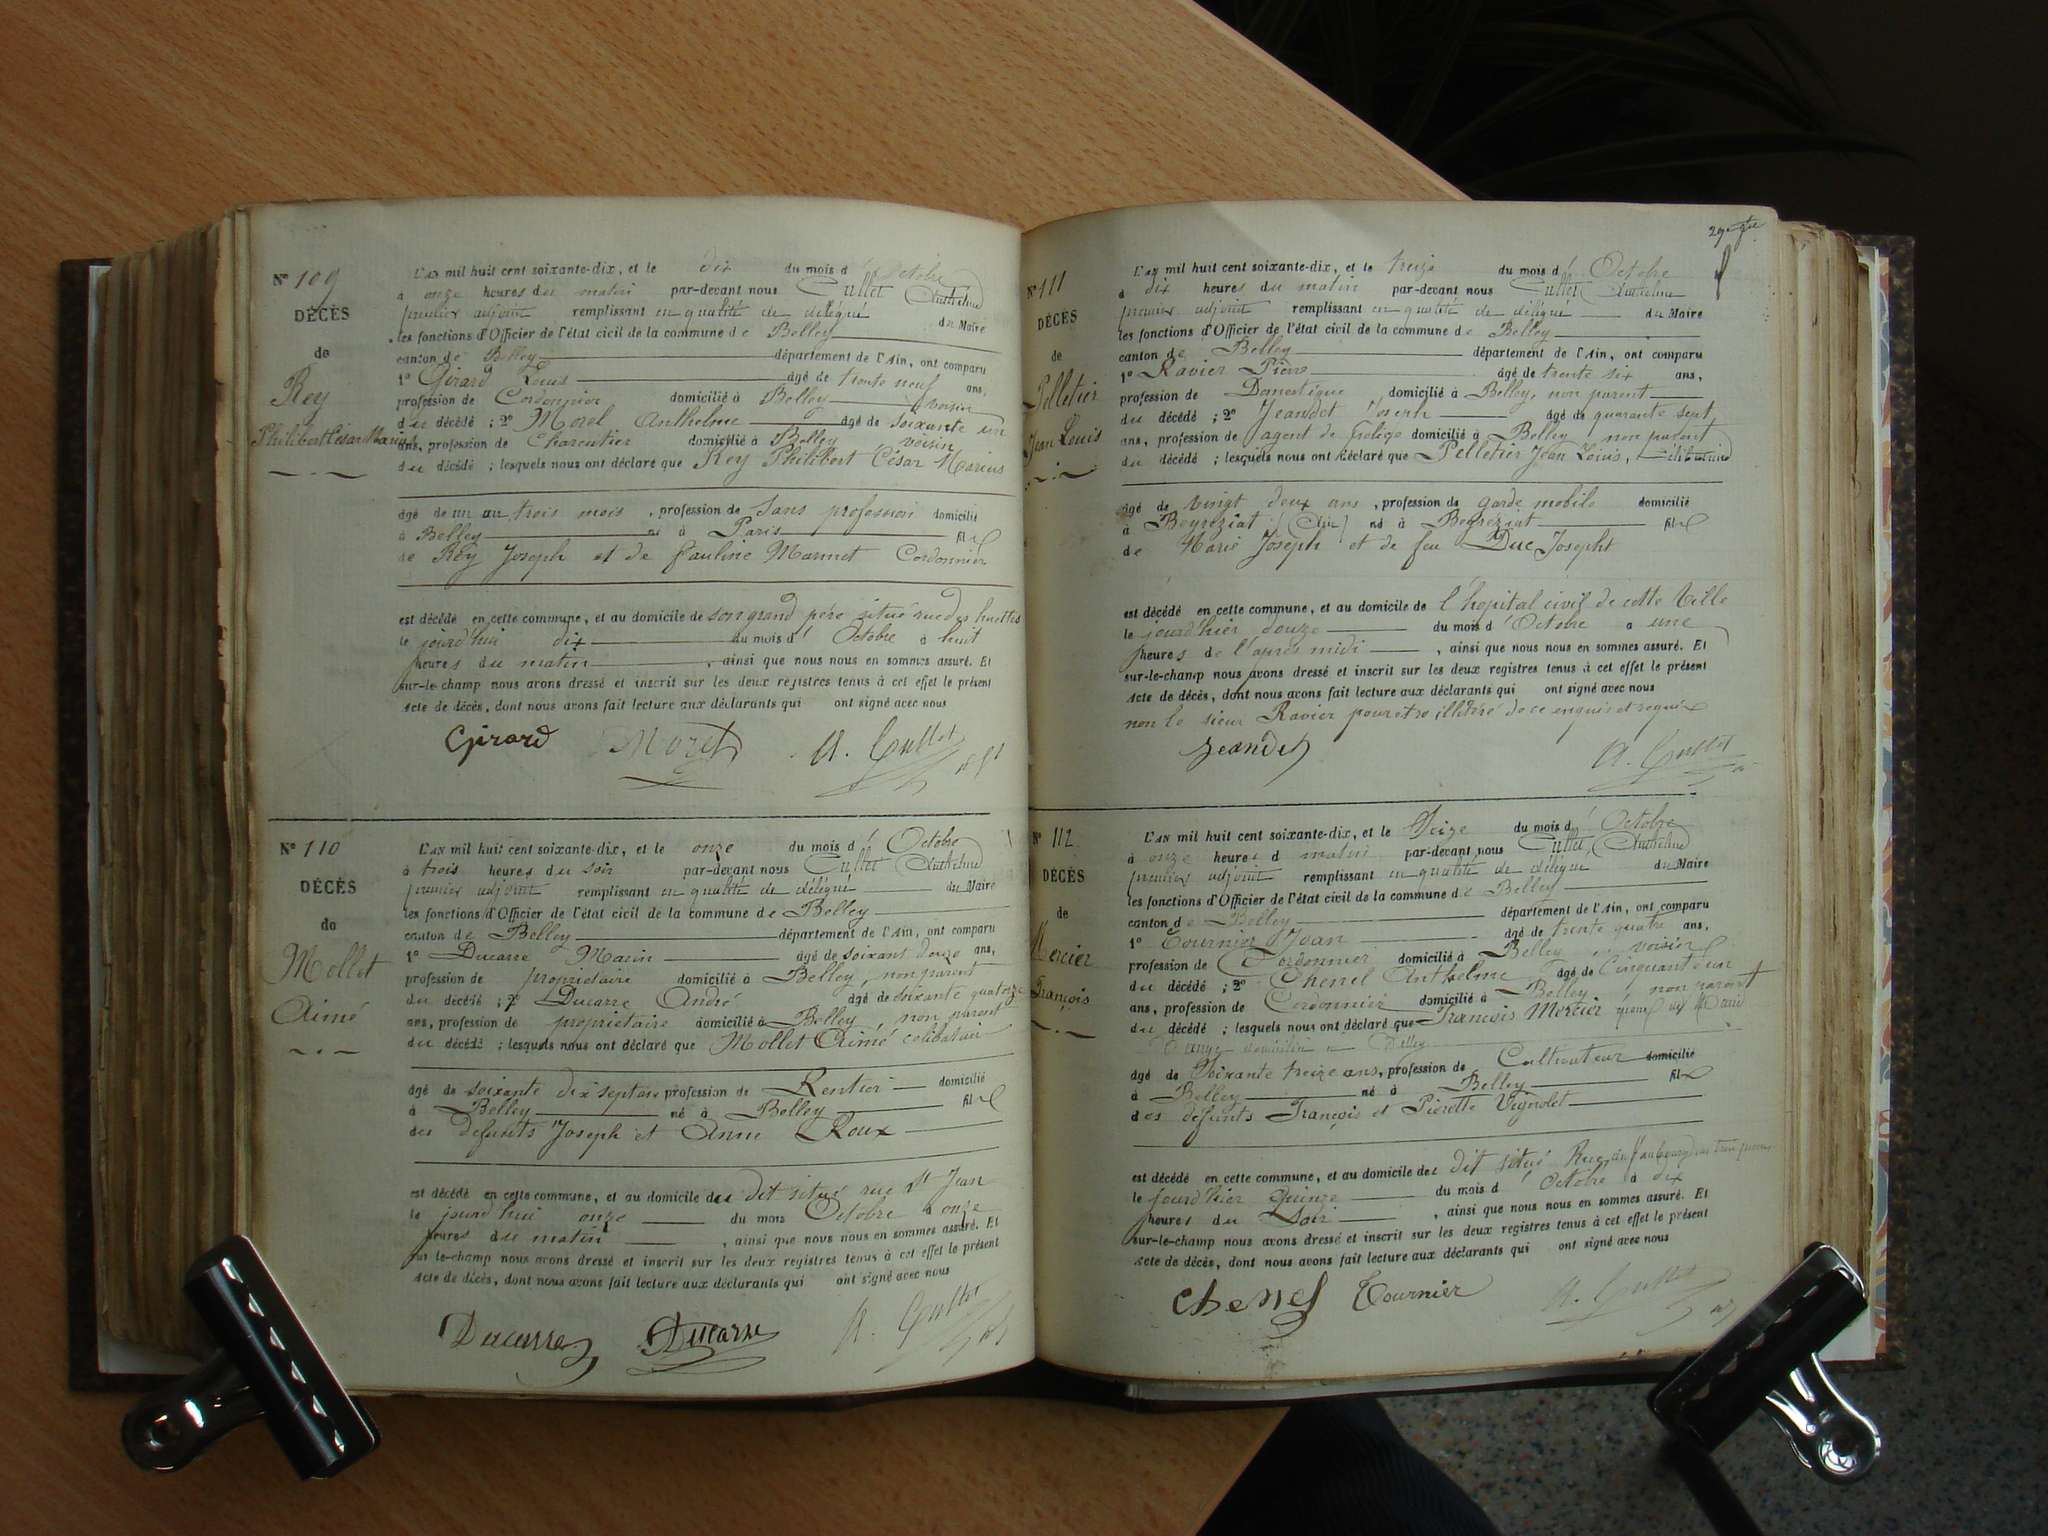 Nº 109
DÉCÈS
de
Rey
Philibert César Marius
L'AN mil huit cent soixante-dix, et le dix du mois d' Octobre
à onze heures du matin par-devant nous Cullet Anthelme
premier adjoint remplissant en qualité de délégué du Maire
les fonctions d'Officier de l'état civil de la commune de Belley
canton de Belley département de l'Ain, ont comparu
1º Girard Louis âgé de trente neuf ans,
profession de Cordonnier domicilié à Belley voisin
du décédé ; 2º Morel Anthelme âgé de soixante un
ans, profession de Charcutier domicilié à Belley voisin
du décédé ; lesquels nous ont déclaré que Rey Philibert César Marius
âgé de un an trois mois, profession de Sans profession domicilié
à Belley né à Paris fils
de Rey Joseph et de Pauline Cordonnier
est décédé en cette commune, et au domicile de son grand père situé rue des
le jourd'hui dix du mois d' Octobre à huit
heures du matin, ainsi que nous nous en sommes assuré. Et
sur-le-champ nous avons dressé et inscrit sur les deux registres tenus à cet effet le présent
acte de décès, dont nous avons fait lecture aux déclarants qui ont signé avec nous
Girard Morel A. Cullet
Nº 110
DÉCÈS
de
Mollet
Aimé
L'AN mil huit cent soixante-dix, et le onze du mois d' Octobre
à trois heures du soir par-devant nous Cullet Anthelme
premier adjoint remplissant en qualité de délégué du Maire
les fonctions d'Officier de l'état civil de la commune de Belley
canton de Belley département de l'Ain, ont comparu
1º Ducarre Marin âgé de soixant douze ans,
profession de propriétaire domicilié à Belley, non parent
du décédé ; 2º Ducarre André âgé de soixante quatorze
ans, profession de propriétaire domicilié à Belley, non parent
du décédé ; lesquels nous ont déclaré que Mollet Aimé celibataire
âgé de soixante dix sept ans profession de Rentier domicilié
à Belley né à Belley fils
des defunts Joseph et Anne Roux
est décédé en cette commune, et au domicile du dit situé rue St Jean
le jourd'hui onze du mois Octobre à onze
heures du matin, ainsi que nous nous en sommes assuré. Et
sur-le-champ nous avons dressé et inscrit sur les deux registres tenus à cet effet le présent
acte de décès, dont nous avons fait lecture aux déclarants qui ont signé avec nous
Ducarre Ducarre A. Cullet
Nº 111
DÉCÈS
de
Pelletier
Jean Louis
L'AN mil huit cent soixante-dix, et le treize du mois d' Octobre
à dix heures du matin par-devant nous Cullet Anthelme
premier adjoint remplissant en qualité de délégué du Maire
les fonctions d'Officier de l'état civil de la commune de Belley
canton de Belley département de l'Ain, ont comparu
1º Ravier Pierre âgé de trente six ans,
profession de Domestique domicilié à Belley, non parent
du décédé ; 2º Jeandet Joseph âgé de quarante sept
ans, profession de agent de police domicilié à Belley non parent
du décédé ; lesquels nous ont déclaré que Pelletier Jean Louis, célibataire
âgé de vingt deux ans, profession de garde mobile domicilié
à Beyreziat (Ain) né à Beyreziat fils
de Marie Joseph et de feu Duc Josepht
est décédé en cette commune, et au domicile de l'hopital civil de cette Ville
le jourd'hier douze du mois d' Octobre à une
heures de l'après midi, ainsi que nous nous en sommes assuré. Et
sur-le-champ nous avons dressé et inscrit sur les deux registres tenus à cet effet le présent
acte de décès, dont nous avons fait lecture aux déclarants qui ont signé avec nous
non le sieur Ravier pour être illétéré de ce enquis et requis
Jeandet A. Cullet
Nº 112
DÉCÈS
de
Mercier
François
L'AN mil huit cent soixante-dix, et le Seize du mois d' Octobre
à onze heures d matin par-devant nous Cullet, Anthelme
premier adjoint remplissant en qualité de délégué du Maire
les fonctions d'Officier de l'état civil de la commune de Belley
canton de Belley département de l'Ain, ont comparu
1º Tournier Jean âgé de trente quatre ans,
profession de Cordonnier domicilié à Belley voisin
du décédé ; 2º Chenel Anthelme âgé de Cinquante un
ans, profession de Cordonnier domicilié à Belley non parent
du décédé ; lesquels nous ont déclaré que François Mercier
domicilié à Belley
âgé de Soixante treize ans, profession de Cultivateur domicilié
à Belley né à Belley fils
des defunts François et Pierette Vignolet
est décédé en cette commune, et au domicile du dit situé Rue du faubourg
le jourd'hier Quinze du mois d' Octobre à dix
heures du Soir, ainsi que nous nous en sommes assuré. Et
sur-le-champ nous avons dressé et inscrit sur les deux registres tenus à cet effet le présent
acte de décès, dont nous avons fait lecture aux déclarants qui ont signé avec nous
Chenel Tournier A. Cullet